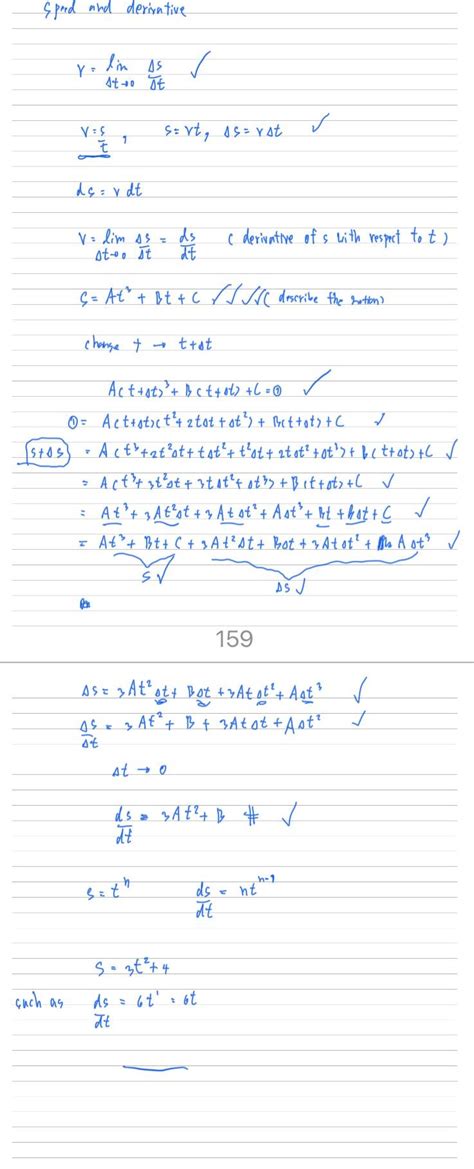 Speed and derivative
v = lim Δt→0 Δs/Δt ✓
v = s/t , s = vt, Δs = vΔt ✓
ds = v dt
v = lim Δt→0 Δs/Δt = ds/dt ( derivative of s with respect to t )
s = At³ + Bt + C ✓✓✓( describe the motion)
change t → t+Δt
A(t+Δt)³ + B(t+Δt) + C = ① ✓
① = A(t+Δt)(t² + 2tΔt + Δt²) + B(t+Δt) + C ✓
s+Δs = A(t³ + 2t²Δt + tΔt² + t²Δt + 2tΔt² + Δt³) + B(t+Δt) + C ✓
= A(t³ + 3t²Δt + 3tΔt² + Δt³) + B(t+Δt) + C ✓
= At³ + 3At²Δt + 3AtΔt² + AΔt³ + Bt + BΔt + C ✓
= At³ + Bt + C + 3At²Δt + BΔt + 3AtΔt² + AΔt³ ✓
s ✓ Δs ✓
159
Δs = 3At²Δt + BΔt + 3AtΔt² + AΔt³ ✓
Δs/Δt = 3At² + B + 3AtΔt + AΔt² ✓
Δt → 0
ds/dt = 3At² + B # ✓
s = tⁿ ds/dt = ntⁿ⁻¹
s = 3t² + 4
such as ds/dt = 6t¹ = 6t